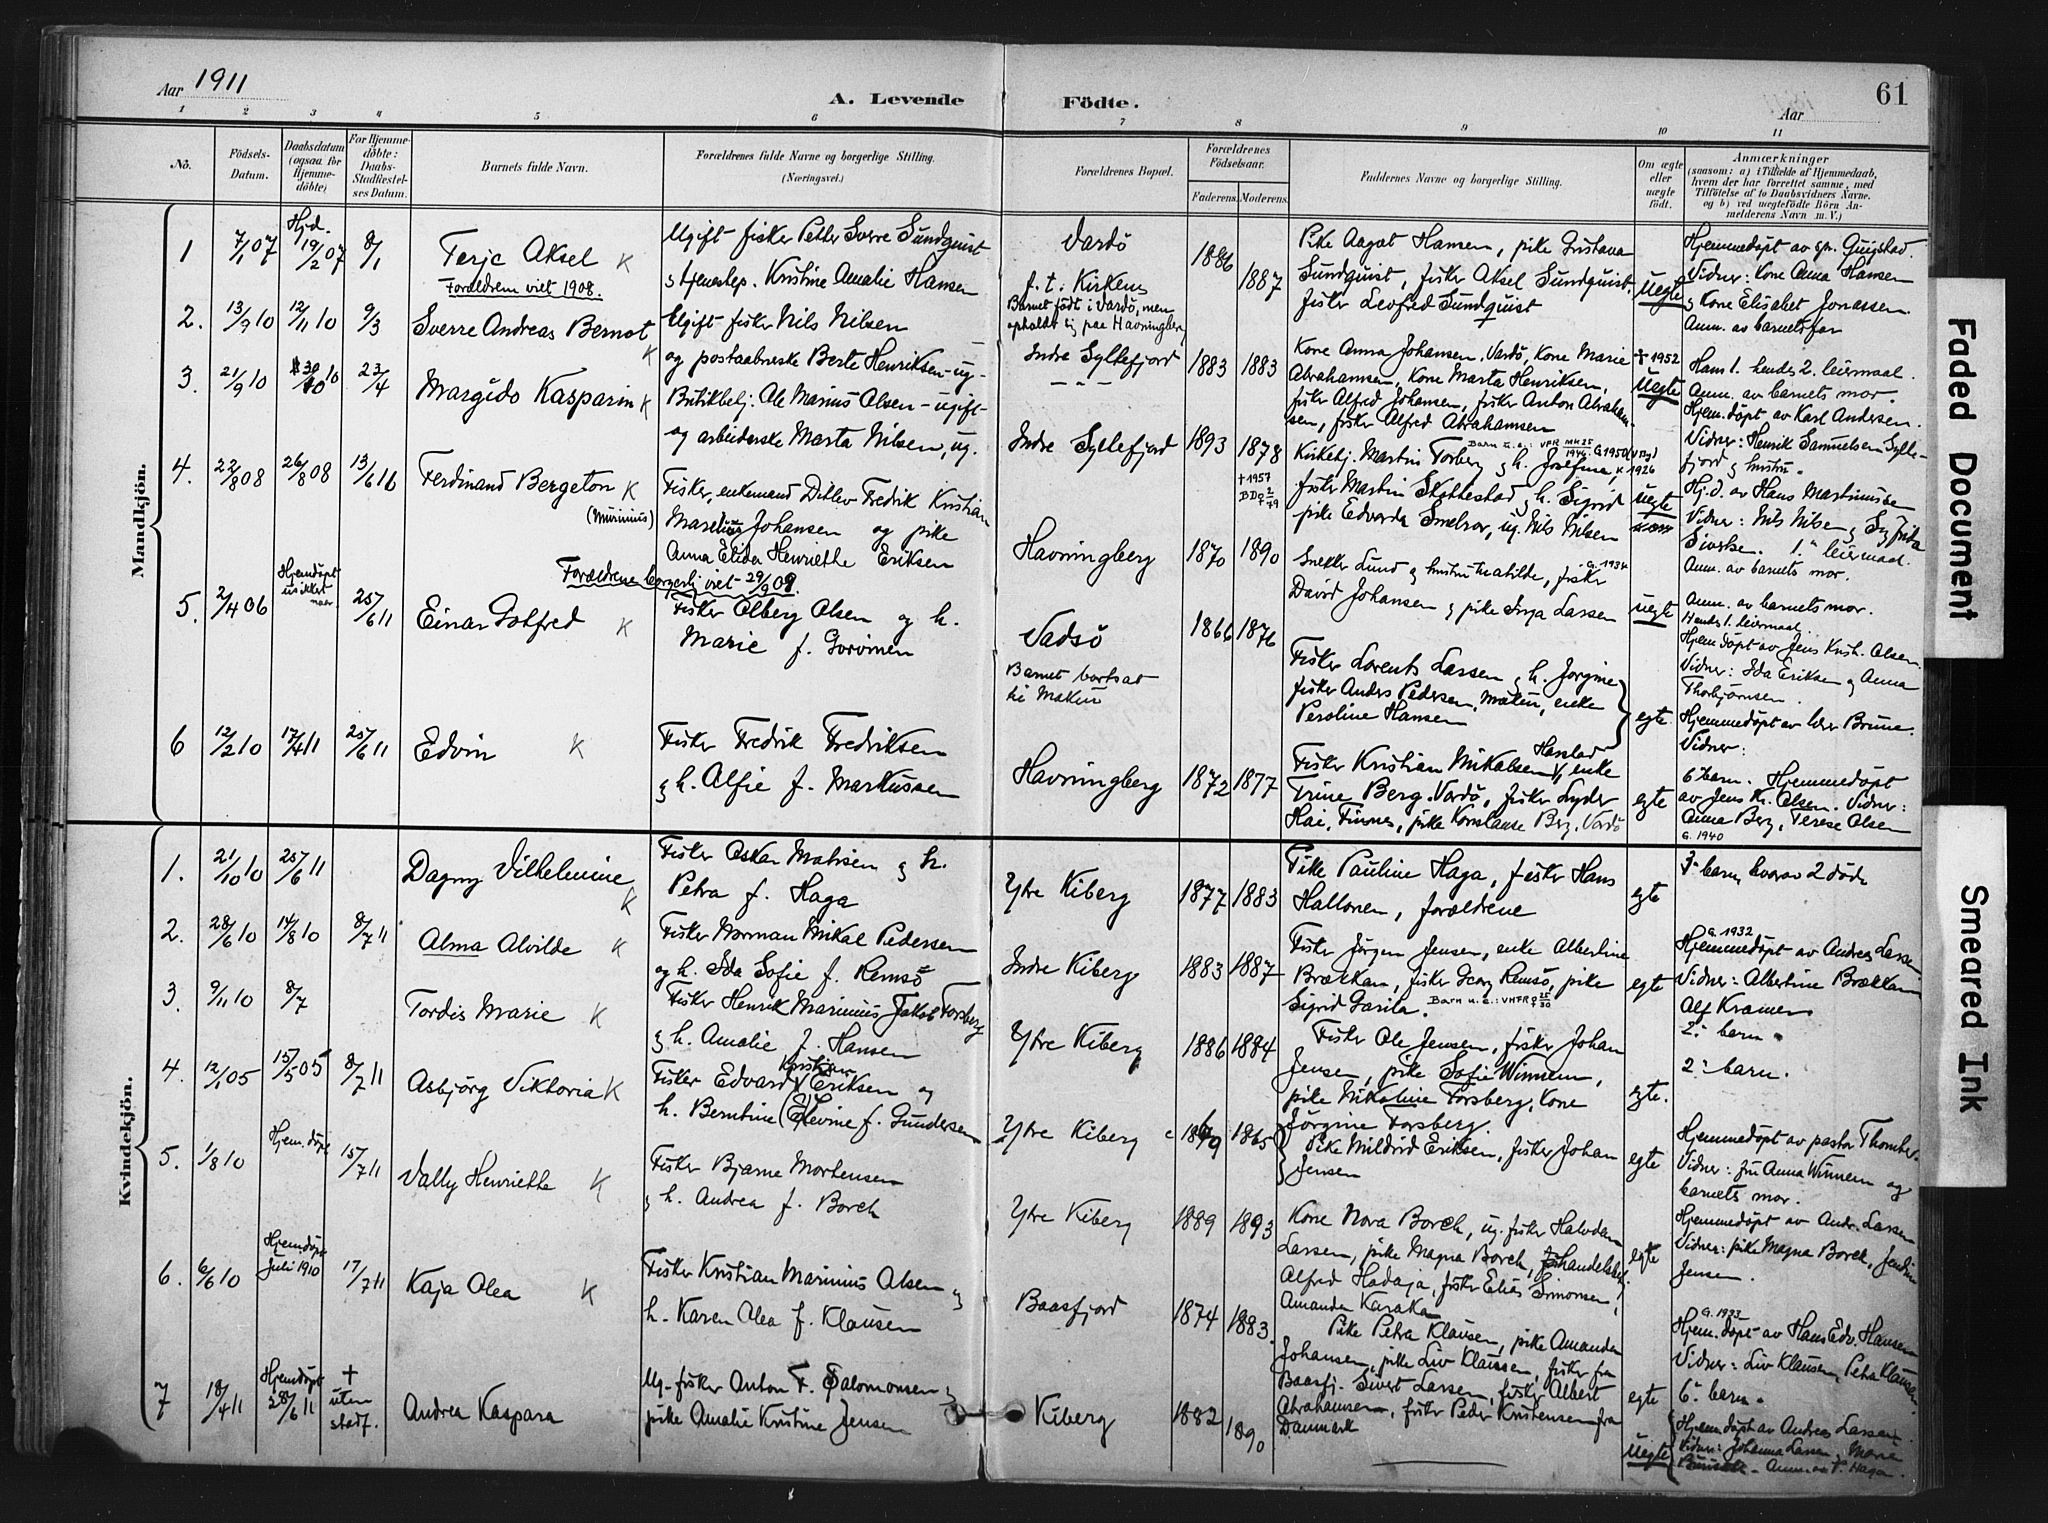 Aar 1911
A. Levende Födte.
Aar
61
1 2 3 4 5 6 7 8 9 10 11
No.
Födsels-Datum.
Daabsdatum (ogsaa for Hjemme-döbte)
For Hjemme-döbte: Daabs-Stadfæstel-ses Datum.
Barnets fulde Navn.
Forældrenes fulde Navne og borgerlige Stilling.
(Næringsvei.)
Forældrenes Bopæl.
Forældrenes Födselsaar.
Faderens. Moderens.
Faddernes Navne og borgerlige Stilling.
Om ægte eller uægte födt.
Anmærkninger
(saasom: a) i Tilfælde af Hjemmedaab,
hvem der har forrettet samme, med
Tilföielse af to Daabsvidners Navne.
og b) ved uegtefödte Börn An-
melderens Navn m. V.)
Mandkjön.
1 7/1 07 Hjd. 19/2 07 8/1 Terje Aksel K
Forældrene viet 1908.
Ugift fisker Petter Sverre Sundquist
og tjenestep. Kristine Amalie Hansen
Vardö
f. t. Kirkenes
1886 1887
Pike Aagot Hansen, pike Gustava
Sundquist, fisker Aksel Sundquist,
fisker Leofred Sundquist
Uegte
Hjemmedöpt av
Vidner: Kone Anna Hansen
og Kone Elisabet Jonassen.
Anm. av barnets far
2. 13/9 10 12/11 10 9/3 Sverre Andreas Bernot K
Ugift fisker Nils Nilsen
og postaabnerske Berte Henriksen - ug -
Barnet födt i Vardö, men
opholdt sig paa Havningberg
Indre Syltefjord
1883 1883
Kone Anna Johansen, Vardö, Kone Marie
Abrahamsen, Kone Marta Henriksen,
fisker Alfred Johansen, fisker Anton Abraham-
sen, fisker Alfred Abrahamsen
† 1952
Uegte
Hans 1. hendes 2. leiermaal.
Anm. av barnets mor.
3. 21/9 10 30/10 10 23/4 Margido Kasparin K
Butikbetj. Ole Marius Olsen - ugift -
og arbeiderske Marta Nilsen, ug.
Indre Syltefjord
1893 1878
† 1957
Kirkebj. Martin Torberg og h. Josefine,
fisker Martin Skattestad, h. Sigrid
pike Edvarda Smelror, ug. Nils Nilsen
uegte
Hjem. döpt av Karl Andersen.
Vidner: Henrik Samuelsen Sylte-
fjord og hustru.
4. 22/8 08 26/8 08 13/6 16 Ferdinand Bergeton K
(Murinius)
Fisker, enkemand Ditlev Fredrik Kristian
Marelius Johansen og pike
Anna Elida Henriethe Eriksen
Havningberg
1870 1890
Snekker Lund og hustru Matilde, fisker
David Johansen og pike Inga Larsen
G. 1934
uegte
Hj. d. av Hans Martinussen
Vidner: Nils Nilsen og Sigfrida
1. leiermaal.
Anm. av barnets mor.
Anm. av barnets mor.
Hendes 1. leiermaal.
Forældrene borgerlig viet 29/9 09.
5. 2/4 06 Hjemdöpt usikkert naar 25/6 11 Einar Gotfred K
Fisker Alberg Olsen og h.
Marie f. Goroinen
Vadsö
Barnet bortsat
til Makur
1866 1876
Fisker Lorents Larsen og h. Jorgine
fisker Anders Pedersen, Makur, enke
Peroline Hansen
egte
Hjem. döpt av Jens Krist. Olsen.
Vidner: Ida Eriksen og Anna
Thorbjörnsen.
Hjemmedöpt av lærer Brune.
Vidner:
6 12/2 10 17/4 11 25/6 11 Edvin K
Fisker Fredrik Fredriksen
og h. Alfie f. Markussen
Havningberg
1872 1877
Fisker Kristian Mikalsen Harstad, enke
Trine Berg, Vardö, fisker Lyder
Hai, Finnes, pike Konstanse Berg, Vardö
egte
6te barn. Hjemmedöpt
av Jens Kr. Olsen. Vidner:
Anna Berg, Terese Olsen
G. 1940
Kvindekjön.
1. 21/10 10 25/6 11 Dagny Vilhelmine K
Fisker Oskar Mathisen og h.
Petra f. Haga
Ytre Kiberg
1877 1883
Pike Pauline Haga, fisker Hans
Hallonen, forældrene
egte
3. barn, hvorav 2 döde
2. 28/6 10 14/8 10 8/7 11 Alma Alvilde K
Fisker Norman Mikal Pedersen
og h. Ida Sofie f. Remsö
Indre Kiberg
1883 1887
Fisker Jörgen Jensen, enke Albertine
Brækkan, fisker Georg Remsö, pike
Sigrid Garila.
egte
G. 1932
Hjemmedöpt av Andreas Larsen
Vidner: Albertine Brækkan
Alf Kramer
2. barn.
3. 9/11 10 8/7 Tordis Marie K
Fisker Henrik Marinius Jakob Torsberg
og h. Amalie f. Hansen
Ytre Kiberg
1886 1884
Fisker Ole Jensen, fisker Johan
Jensen, pike Sofie Winnem,
pike Nikoline Torsberg, Kone
Jörgine Torsberg.
egte.
2. barn.
4. 12/1 05 15/5 05 8/7 11 Asbjörg Viktoria K
Fisker Edvard Kristian Eriksen og
h. Berntine Elevine f. Gundersen
Ytre Kiberg
1865
Pike Mildrid Eriksen, fisker Johan
Jensen
egte
Hjemmedöpt av pastor
Vidner: fru Anna Winnem og
barnets mor.
5. 1/8 10 Hjem. döpt 15/7 11 Vally Henriette K
Fisker Bjarne Mortensen
og h. Andrea f. Borch
Ytre Kiberg
1889 1893
Kone Nora Borch, ug. fisker Halvdan
Larsen, pike Magna Borch, handelsbetj.
Alfred Hadaja, fisker Elias Simonsen,
Amanda Karaka
egte
Hjemmedöpt av Andr. Larsen
Vidner: pike Magna Borch, Jendine
Jensen.
6. 6/6 10 Hjemdöpt Juli 1910 17/7 11 Kaja Olea K
Fisker Kristian Marinius Olsen og
h. Karen Olea f. Klausen
Baasfjord
1874 1883.
Pike Petra Klausen, pike Amanda
Johansen, pike Liv Klausen, fisker fra
Baasfj. Sivert Larsen, fisker Albert
Abrahamsen, fisker Peder Kristensen fra
Danmark
egte
G. 1933
Hjem. döpt av Hans Edv. Hansen
Vidner: Liv Klausen, Petra Klausen.
6. barn.
7 18/4 11 Hjemdöpt 28/6 11 † uten stadf. Andrea Kaspara
Ug. fisker Anton F. Salomonsen og
pike Amalie Kristine Jensen
Kiberg
1882 1890
Uegte
Hjem. döpt av Andreas Larsen.
Vidner: Johanna Larsen, Marie
Anm. av P. Haga.
Faded Document
Smeared Ink